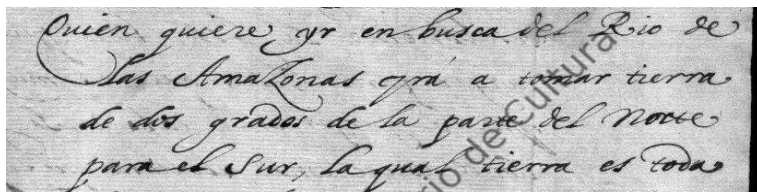 Quien quiere yr en busca del Rio de
las Amazonas yrá a tomar tierra
de dos grados de la parte del Norte
para el sur, la qual tierra es toda
rio de Cultura